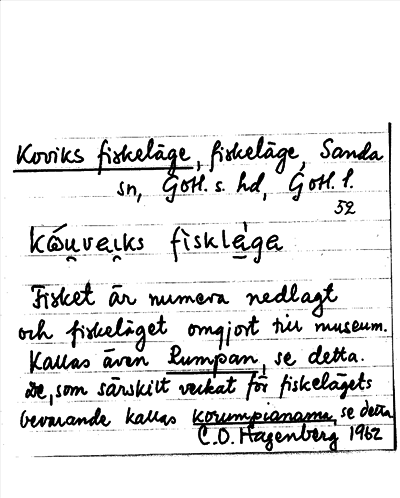 Koviks fiskeläge, fiskeläge, Sanda
sn, Gotl. s. hd, Gotl. l.
52
fisklaga
Fisket är numera nedlagt
och fiskeläget omgjort till museum.
Kallas även Rumpan, se detta.
De, som särskilt verkat för fiskelägets
bevarande kallas korumpianarna, se detta
C.O. Hagenberg 1962